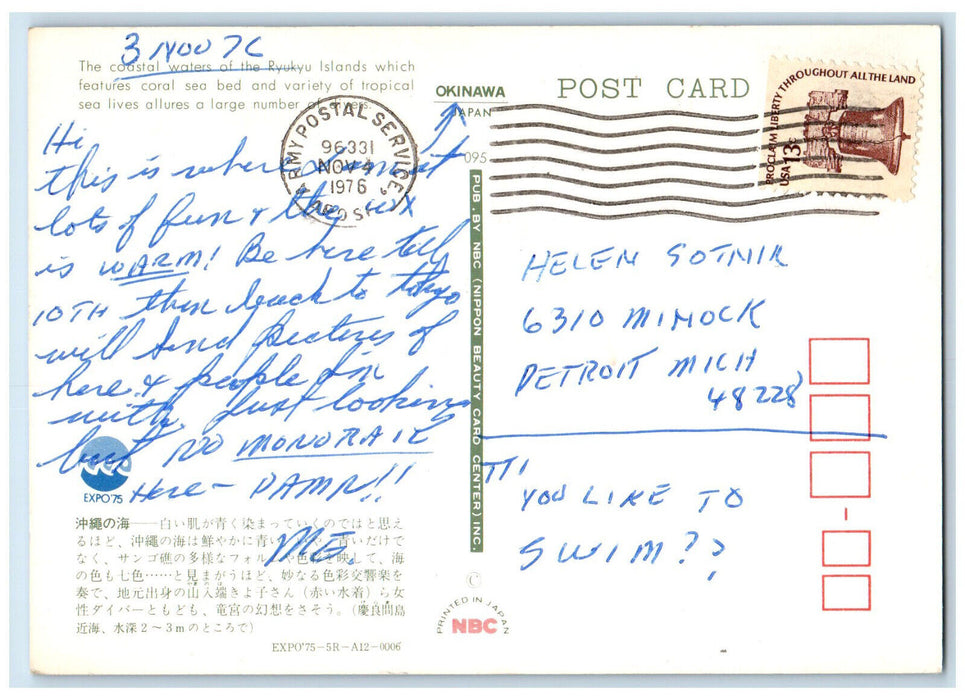 3 NOV 76
The coastal waters of the Ryukyu Islands which
features coral sea bed and variety of tropical
sea lives allures a large number of divers.
Hi
this is where I'm at
lots of fun & the wx
is WARM! Be here till
10TH then back to Tokyo
will send pictures of
here & people I'm
with. Just looking
but NO MONORAIL
Here - DAMN!!
ME.
EXPO'75
沖縄の海——白い肌が青く染まっていくのではと思え
るほど、沖縄の海は鮮やかに青い いや、青いだけで
なく、サンゴ礁の多様なフォルムや色彩を映して、海
の色も七色……と見まがうほど、妙なる色彩交響楽を
奏で、地元出身の山入端きよ子さん(赤い水着)ら女
性ダイバーともども、竜宮の幻想をさそう。(慶良間島
近海、水深2～3mのところで)
EXPO'75-5R-A12-0006
OKINAWA
JAPAN
095
PUB. BY NBC (NIPPON BEAUTY CARD CENTER) INC.
©
PRINTED IN JAPAN
NBC
POST CARD
ARMY POSTAL SERVICE
96331
NOV 4
1976
APO SF
PROCLAIM LIBERTY THROUGHOUT ALL THE LAND
USA 13c
HELEN SOTNIK
6310 MINOCK
DETROIT MICH
48228
YOU LIKE TO
SWIM??